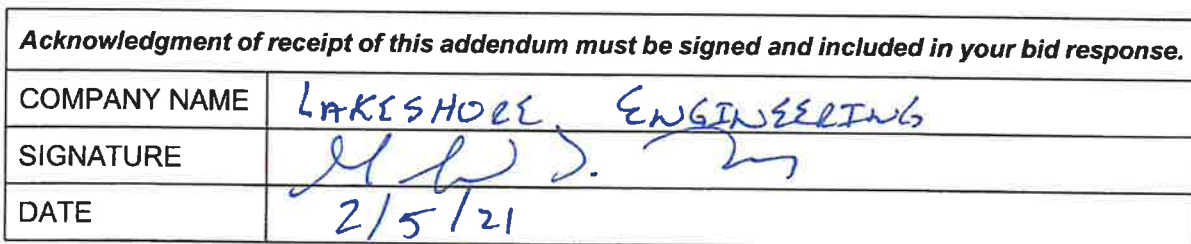 Acknowledgment of receipt of this addendum must be signed and included in your bid response.
COMPANY NAME LAKESHORE ENGINEERING
SIGNATURE
DATE 2/5/21